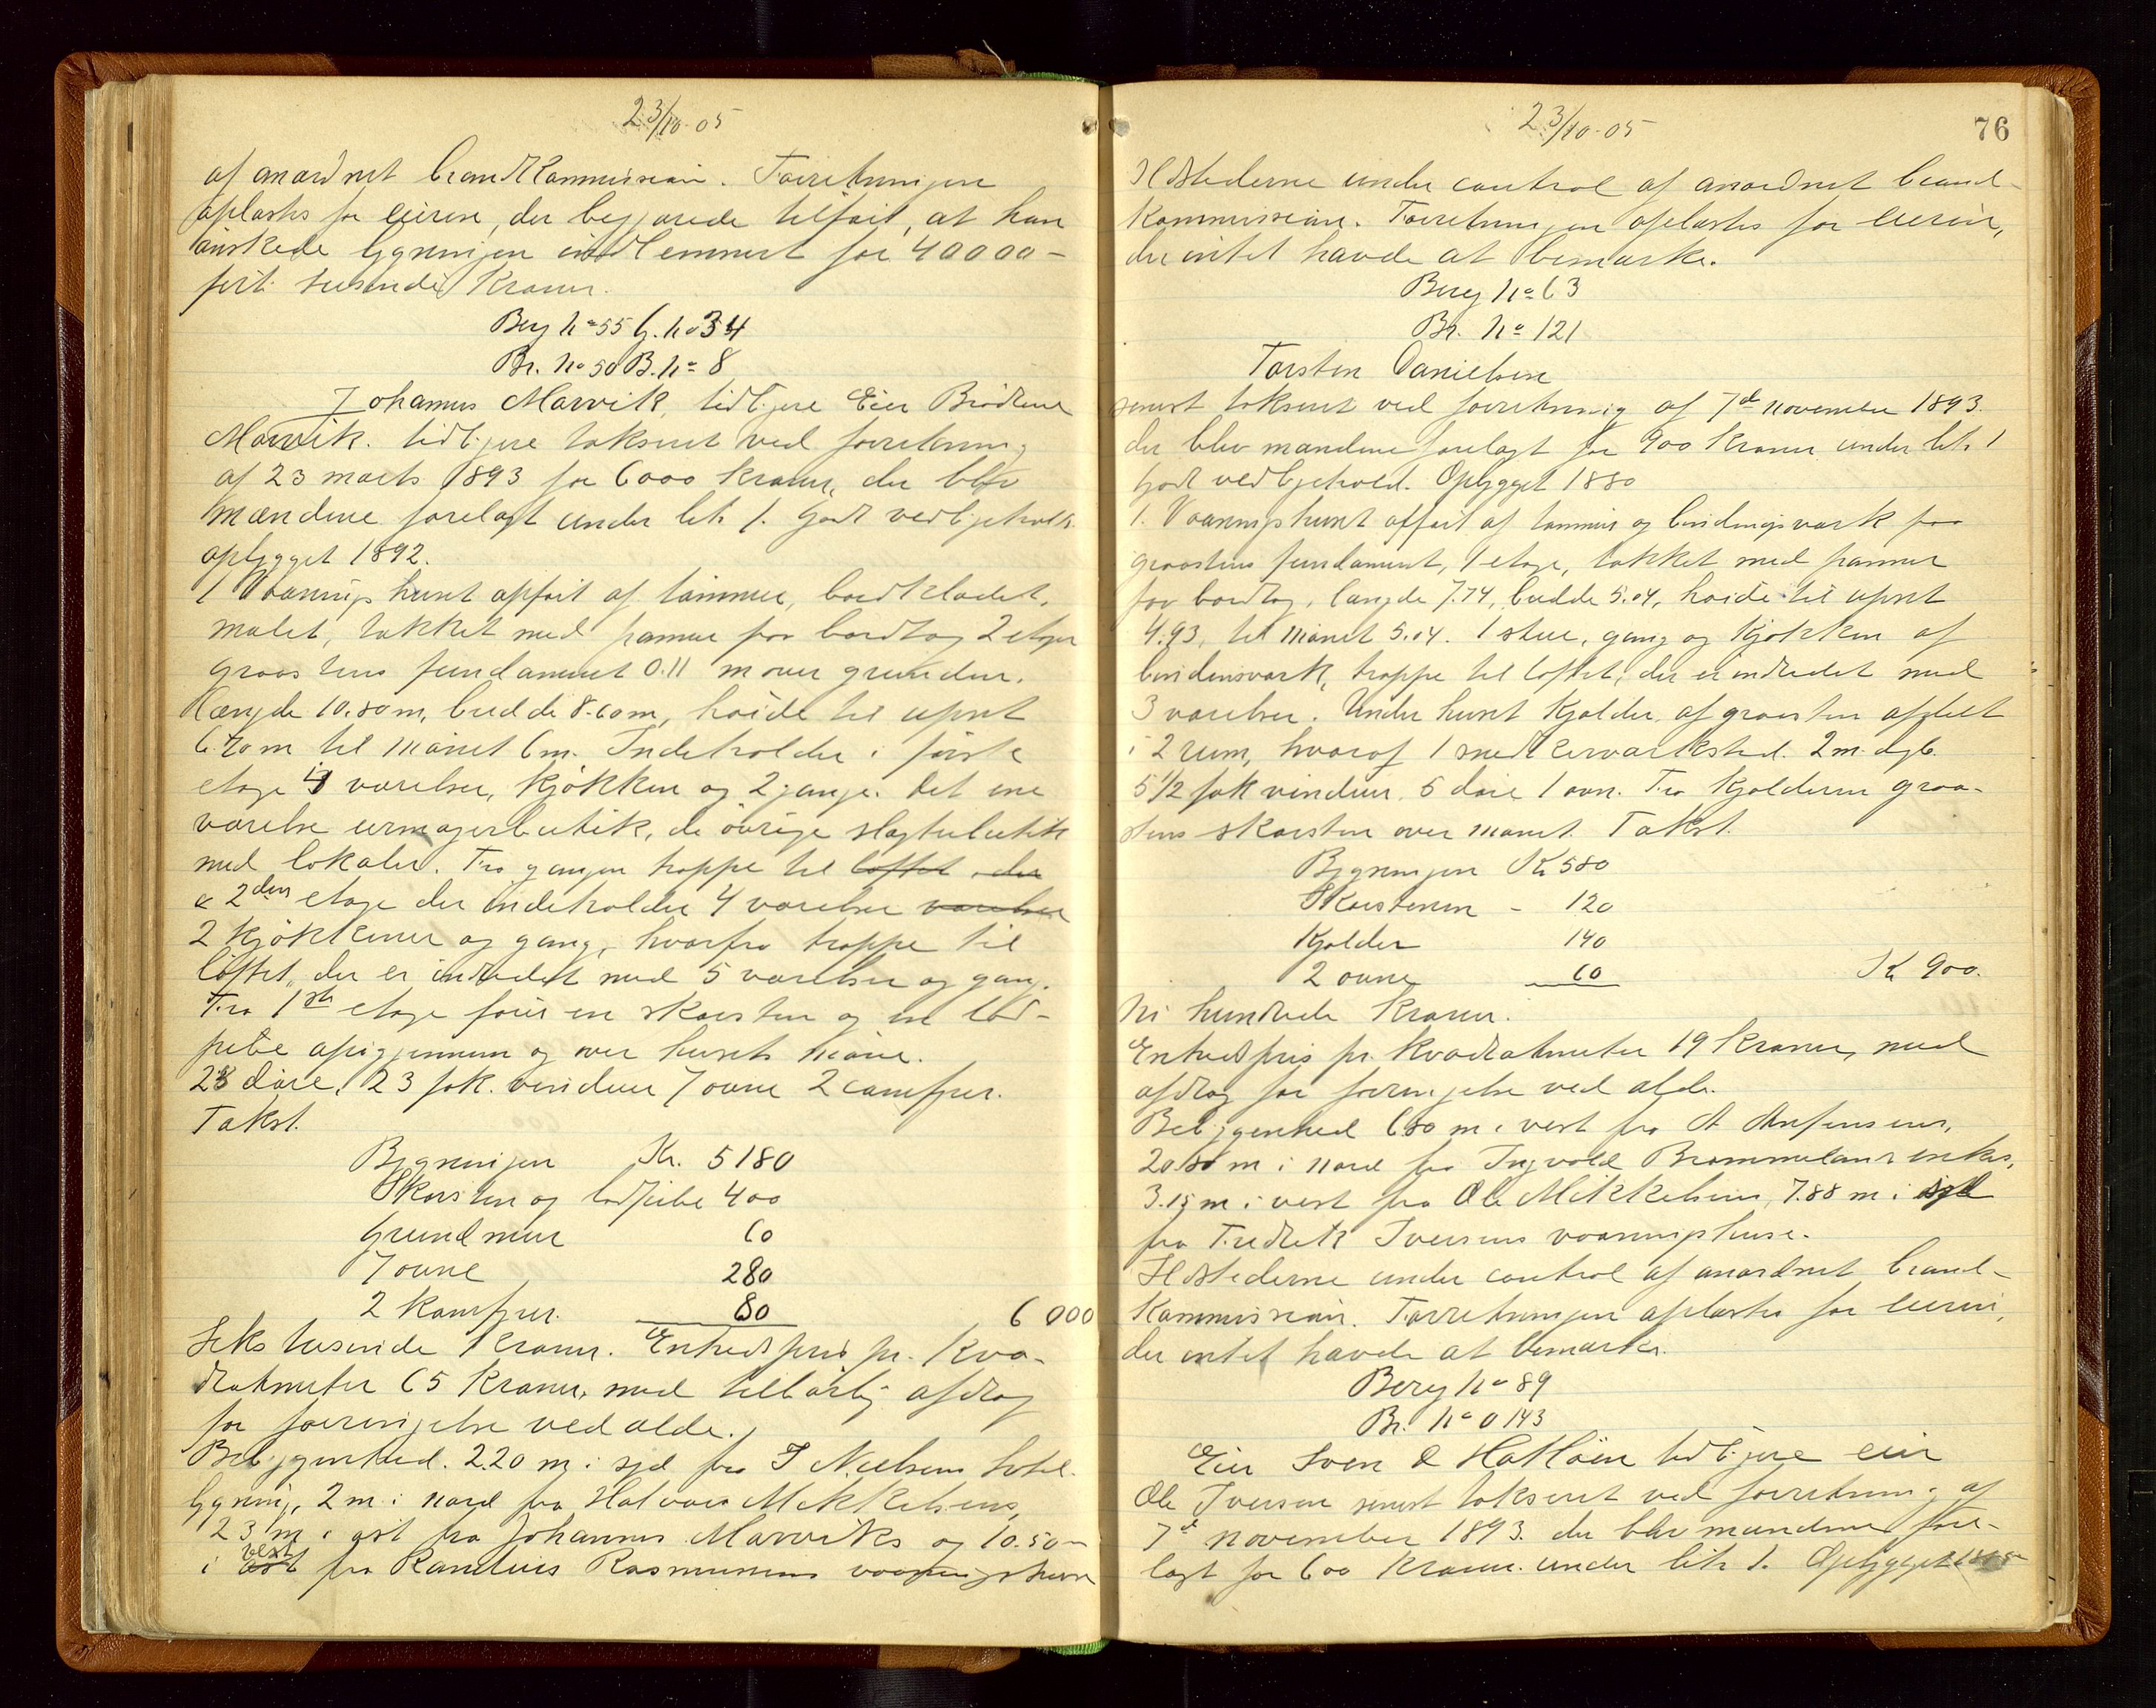 23/10-05
af anordnet brandkommission. Forretningen
oplæstes for eieren, der begjærede tilført, at han
ønskede bygningen indlemmet for 40000-
firti tusende Kroner.
Beg No 55 G. No 34
Br. No 50 B. No 8
Johannes Marvik, tidligere Eier Brødrene
Marvik. tidligere takseret ved forretning
af 23 marts 1893 for 6000 kroner, der blev
mændene forelagt under litr 1. Godt vedligeholdt
opbygget 1892.
1 Vaaningshuset opført af tømmer, bordklædet,
malet, tækket med panner paa bordtag 2 etager
graastens fundament 0.11 m over grunden.
Længde 10.80 m, bredde 8.60 m, høide til opset
6.20 m til mønet 6 m. Indeholder i første
etage 4 værelser, kjøkken og 2 gange. Det ene
værelse urmagerbutik, de øvrige slagterbutik
med lokaler. Fra gangen trappe til loftet, der
a 2den etage der indeholder 4 værelser værelser
2 kjøkkener og gang, hvorfra trappe til
loftet, der er indredet med 5 værelser og gang.
Fra 1ste etage fører en skorsten og en lød-
pibe opigjennem og over husets møne.
28 døre, 23 fak. vinduer 7 ovne 2 comfyrer.
Takst.
Bygningen Kr. 5180
Skorsten og lødpibe 400
Grundmur 60
7 ovne 280
2 komfyrer. 80 6000
Seks tusende Kroner. Enhedspris pr. Kva-
dratmeter 65 Kroner, med tilbørlig afdrag
for forringelse ved ælde.
Bebyggenhed. 2.20 m i syd fra J Nielsens hotel-
bygning, 2 m i nord fra Halvor Mikkelsens,
23 m i øst fra Johannes Marviks og 10.50 m
i øst vest fra Randuis Rasmussens vaaningshuse
23/10-05
76
Ildstederne under control af anordnet brand-
kommission. Forretningen oplæstes for eieren,
der intet havde at bemærke.
Beg No 63
Br. No 121
Torsten Danielsen
senest takseret ved forretning af 7de november 1893.
der blev mændene forelagt for 900 kroner under litr 1
Godt vedligehold. Opbygget 1880
1. Vaaningshuset opført af tømmer og bindingsværk paa
graastens fundament, 1 etage, tækket med panner
paa bordtag, længde 7.74, bredde 5.04, høide til opset
4.93, til mønet 5.04. 1 stue, gang og kjøkken af
bindensværk, trappe til loftet, der er indredet med
3 værelser. Under huset kjælder af graasten afdelt
i 2 rum, hvoraf 1 snedkerværksted. 2 m. dyb.
5 1/2 fak vinduer. 5 døre 1 ovn. Fra kjælderen graa-
stens skorsten over mønet. Takst.
Bygningen Kr 580
Skorstenen - 120
Kjælder 140
2 ovne 60 Kr 900.
Ni hundrede Kroner.
Enhedspris pr. kvadratmeter 19 kroner, med
afdrag for forringelse ved ælde.
Bebyggenhed 6.80 m i vest fra A Anfinsens,
20.80 m i nord fra Ingvald Brommelands enkes,
3.15 m i vest fra Ole Mikkelsens, 7.88 m i syd
fra Fredrik Iversens vaaningshuse.
Ildstederne under control af anordnet brand-
kommission. Forretningen oplæstes for eieren,
der intet havde at bemærke.
Beg No 89
Br. No 0143
Eier Sven O Hatløen tidligere eier
Ole Iversen senest takseret ved forretning af
7de november 1893. der blev mændene fore-
lagt for 600 kroner. under litr 1. Opbygget